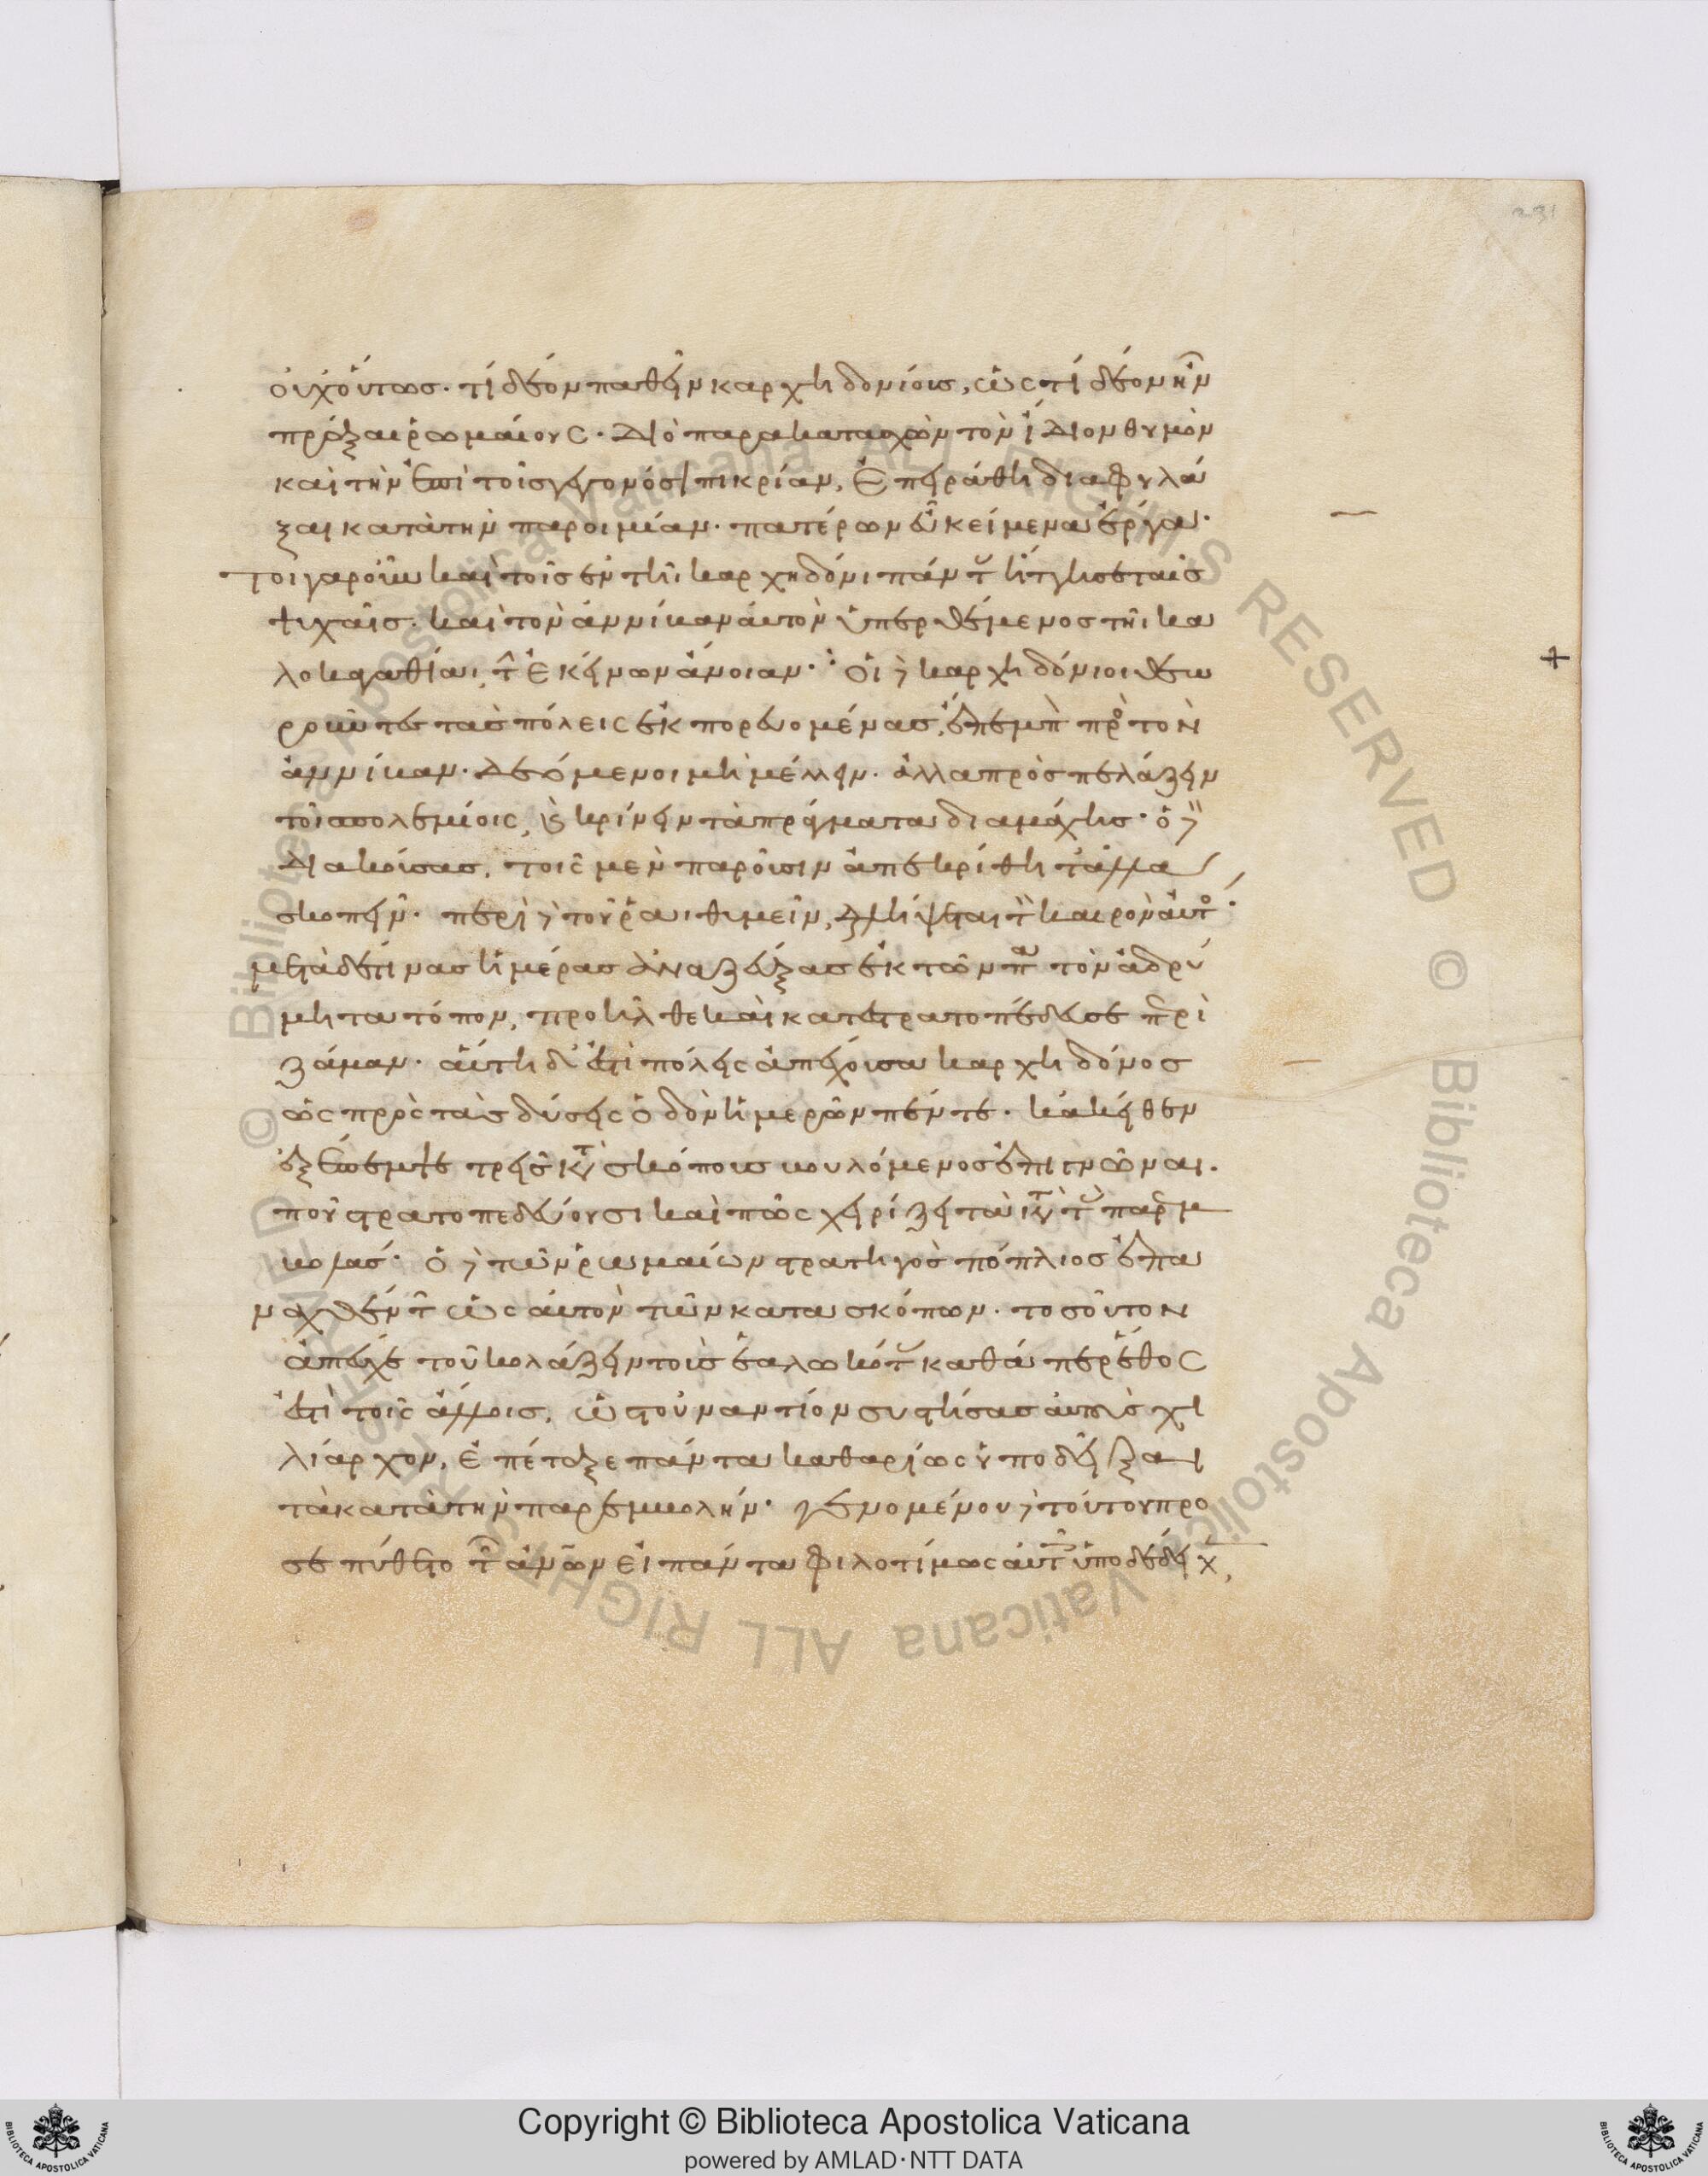 231
οὐχ οὕτως· τί δέον παθεῖν καρχηδονίοις, ὡς τί δέον ἦν
πρᾶξαι ῥωμαίους· διὸ παρακατασχὼν τὸν ἴδιον θυμὸν
καὶ τὴν ἐπὶ τοῖς γεγονόσι πικρίαν, ἐπειράθη διαφυλά
ξαι κατὰ τὴν παροιμίαν· πατέρων εὖ κείμενα ἔργα·
τοιγαροῦν καὶ τοῖς ἐν τῆι καρχηδόνι πάντας ἥττησε ταῖς
ψυχαῖς· καὶ τὸν ἀννίβαν αὐτὸν ὑπερθέμενος τῆι κα
λοκἀγαθίαι, τὴν ἐκείνων ἄνοιαν· οἱ δὲ καρχηδόνιοι θεω
ροῦντες τὰς πόλεις ἐκπορευομένας, ἔπεμπον πρὸς τὸν
ἀννίβαν· δεόμενοι μὴ μέλλειν· ἀλλὰ προσπελάζειν
τοῖς πολεμίοις, καὶ κρίνειν τὰ πράγματα διὰ μάχης· ὁ δὲ
διακούσας, τοῖς μὲν παροῦσιν ἀπεκρίθη τἄλλα
σκοπεῖν· περὶ δὲ τούτου ῥαιθυμεῖν, λήψεσθαι γὰρ τὸν καιρὸν αὐτός·
μετὰ δέ τινας ἡμέρας ἀναζεύξας ἐκ τῶν παρὰ τὸν ἀδρύ
μητα τόπων, προῆλθε καὶ κατεστρατοπέδευσε περὶ
ζάμαν· αὕτη δ' ἐστὶ πόλις ἀπέχουσα καρχηδόνος
ὡς πρὸς τὰς δύσεις ὁδὸν ἡμερῶν πέντε· κἀκεῖθεν
ἐξέπεμψε τρεῖς κατασκόπους βουλόμενος ἐπιγνῶναι·
ποῦ στρατοπεδεύουσι καὶ πῶς χειρίζει τὰ κατὰ τὰς παρεμ
βολάς· ὁ δὲ τῶν ῥωμαίων στρατηγὸς πόπλιος ἐπα
ναχθέντων ὡς αὐτὸν τῶν κατασκόπων· τοσοῦτον
ἀπέσχε τοῦ κολάζειν τοὺς ἑαλωκότας καθάπερ ἔθος
ἐστὶ τοῖς ἄλλοις, ὥστε τοὐναντίον συστήσας αὐτοῖς χι
λίαρχον, ἐπέταξε πάντα καθαρίως ὑποδεῖξαι
τὰ κατὰ τὴν παρεμβολήν· γενομένου δὲ τούτου προ
σεπύθετο τῶν ἀνθρώπων εἰ πάντα φιλοτίμως αὐτοῖς ὑποδέδειχεν
Copyright © Biblioteca Apostolica Vaticana
powered by AMLAD·NTT DATA